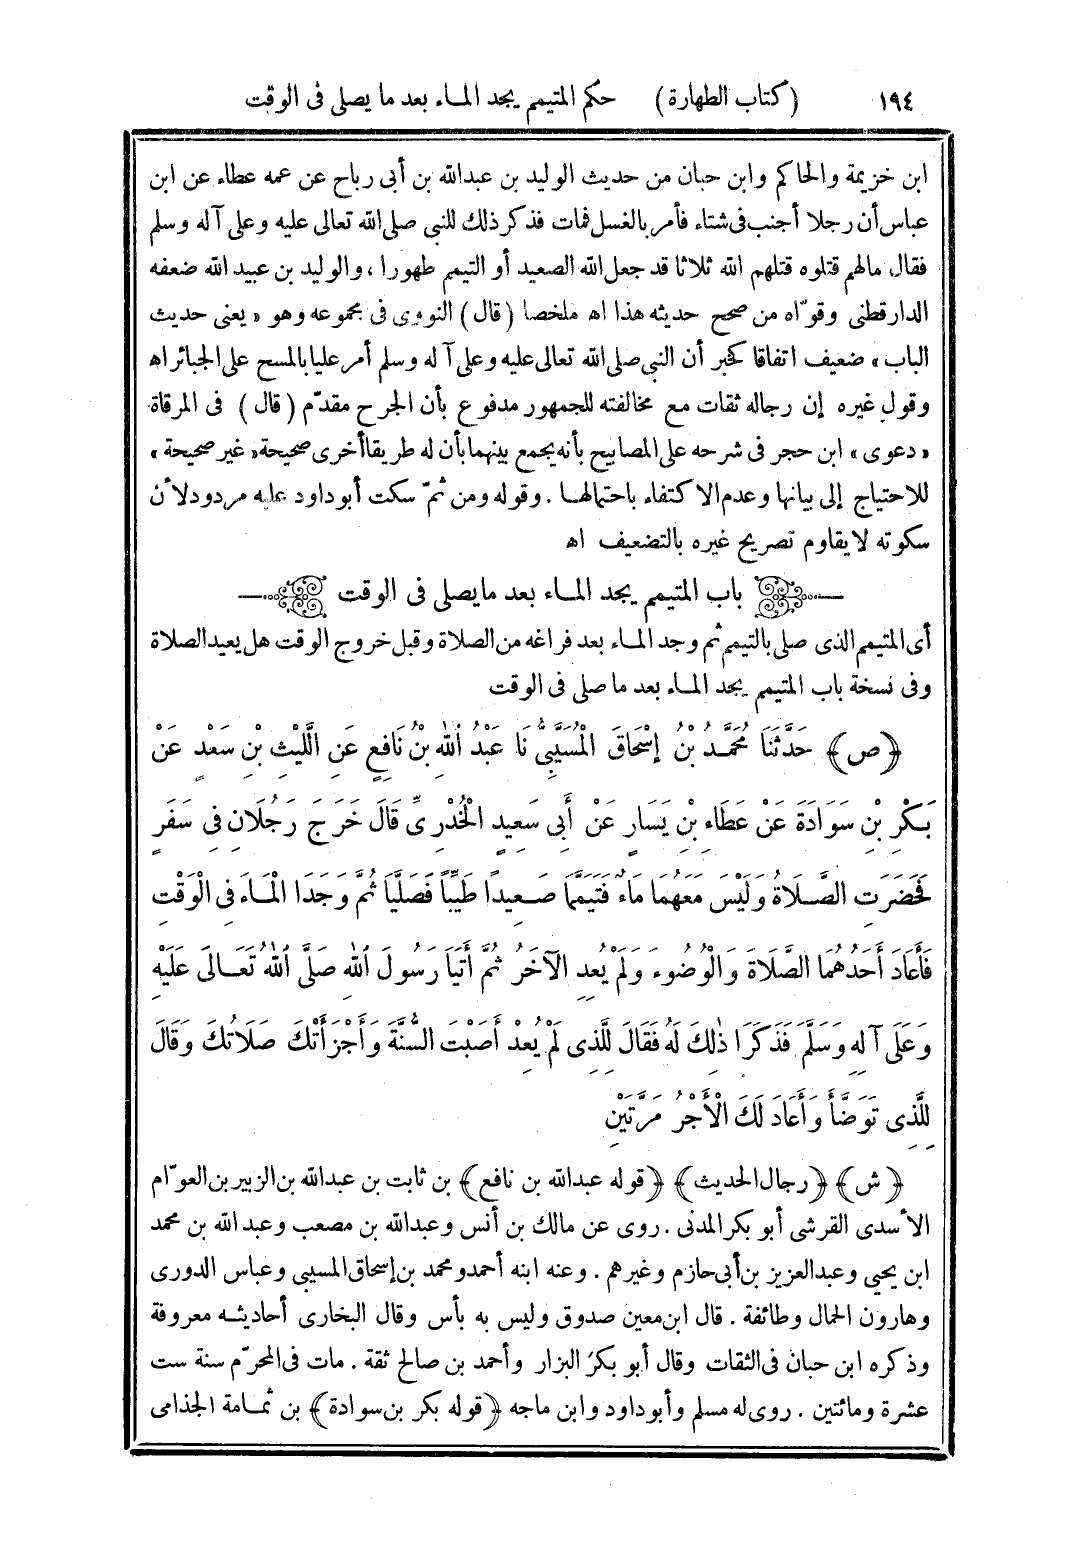 ١٩٤ (كتاب الطهارة) حكم المتيمم يجد الماء بعد ما يصلى فى الوقت
ابن خزيمة والحاكم وابن حبان من حديث الوليد بن عبدالله بن أبى رباح عن عمه عطاء عن ابن
عباس أن رجلا أجنب فى شتاء فأمر بالغسل فمات فذكر ذلك للنبى صلى الله تعالى عليه وعلى آله وسلم
فقال مالهم قتلوه قتلهم الله ثلاثا قد جعل الله الصعيد أو التيمم طهورا ، والوليد بن عبيد الله ضعفه
الدارقطنى وقوّاه من صحح حديثه هذا اه ملخصا (قال) النووى فى مجموعه وهو «يعنى حديث
الباب» ضعيف اتفاقا كخبر أن النبى صلى الله تعالى عليه وعلى آله وسلم أمر عليا بالمسح على الجبائر اه
وقول غيره إن رجاله ثقات مع مخالفته للجمهور مدفوع بأن الجرح مقدّم (قال) فى المرقاة
«دعوى» ابن حجر فى شرحه على المصابيح بأنه يجمع بينهما بأن له طريقا أخرى صحيحة «غير صحيحة»
للاحتياج إلى بيانها وعدم الاكتفاء باحتمالها . وقوله ومن ثمّ سكت أبو داود عليه مردود لأن
سكوته لا يقاوم تصريح غيره بالتضعيف اه
باب المتيمم يجد الماء بعد ما يصلى فى الوقت
أى المتيمم الذى صلى بالتيمم ثم وجد الماء بعد فراغه من الصلاة وقبل خروج الوقت هل يعيد الصلاة
وفى نسخة باب المتيمم يجد الماء بعد ما صلى فى الوقت
﴿ص﴾ حَدَّثَنَا مُحَمَّدُ بْنُ إِسْحَاقَ الْمُسَيَّبِىُّ نَا عَبْدُ اللهِ بْنُ نَافِعٍ عَنِ اللَّيْثِ بْنِ سَعْدٍ عَنْ
بَكْرِ بْنِ سَوَادَةَ عَنْ عَطَاءِ بْنِ يَسَارٍ عَنْ أَبِى سَعِيدٍ الْخُدْرِىِّ قَالَ خَرَجَ رَجُلَانِ فِى سَفَرٍ
فَحَضَرَتِ الصَّلَاةُ وَلَيْسَ مَعَهُمَا مَاءٌ فَتَيَمَّمَا صَعِيدًا طَيِّبًا فَصَلَّيَا ثُمَّ وَجَدَا الْمَاءَ فِى الْوَقْتِ
فَأَعَادَ أَحَدُهُمَا الصَّلَاةَ وَالْوُضُوءَ وَلَمْ يُعِدِ الْآخَرُ ثُمَّ أَتَيَا رَسُولَ اللهِ صَلَّى اللهُ تَعَالَى عَلَيْهِ
وَعَلَى آلِهِ وَسَلَّمَ فَذَكَرَا ذٰلِكَ لَهُ فَقَالَ لِلَّذِى لَمْ يُعِدْ أَصَبْتَ السُّنَّةَ وَأَجْزَأَتْكَ صَلَاتُكَ وَقَالَ
لِلَّذِى تَوَضَّأَ وَأَعَادَ لَكَ الْأَجْرُ مَرَّتَيْنِ
﴿ش﴾ ﴿رجال الحديث﴾ ﴿قوله عبدالله بن نافع﴾ بن ثابت بن عبدالله بن الزبير بن العوّام
الأسدى القرشى أبو بكر المدنى . روى عن مالك بن أنس وعبدالله بن مصعب وعبد الله بن محمد
ابن يحيى وعبدالعزيز بن أبى حازم وغيرهم . وعنه ابنه أحمد ومحمد بن إسحاق المسيبى وعباس الدورى
وهارون الحمال وطائفة . قال ابن معين صدوق وليس به بأس وقال البخارى أحاديثه معروفة
وذكره ابن حبان فى الثقات وقال أبو بكر البزار وأحمد بن صالح ثقة . مات فى المحرّم سنة ست
عشرة ومائتين . روى له مسلم وأبو داود وابن ماجه ﴿قوله بكر بن سوادة﴾ بن ثمامة الجذامى